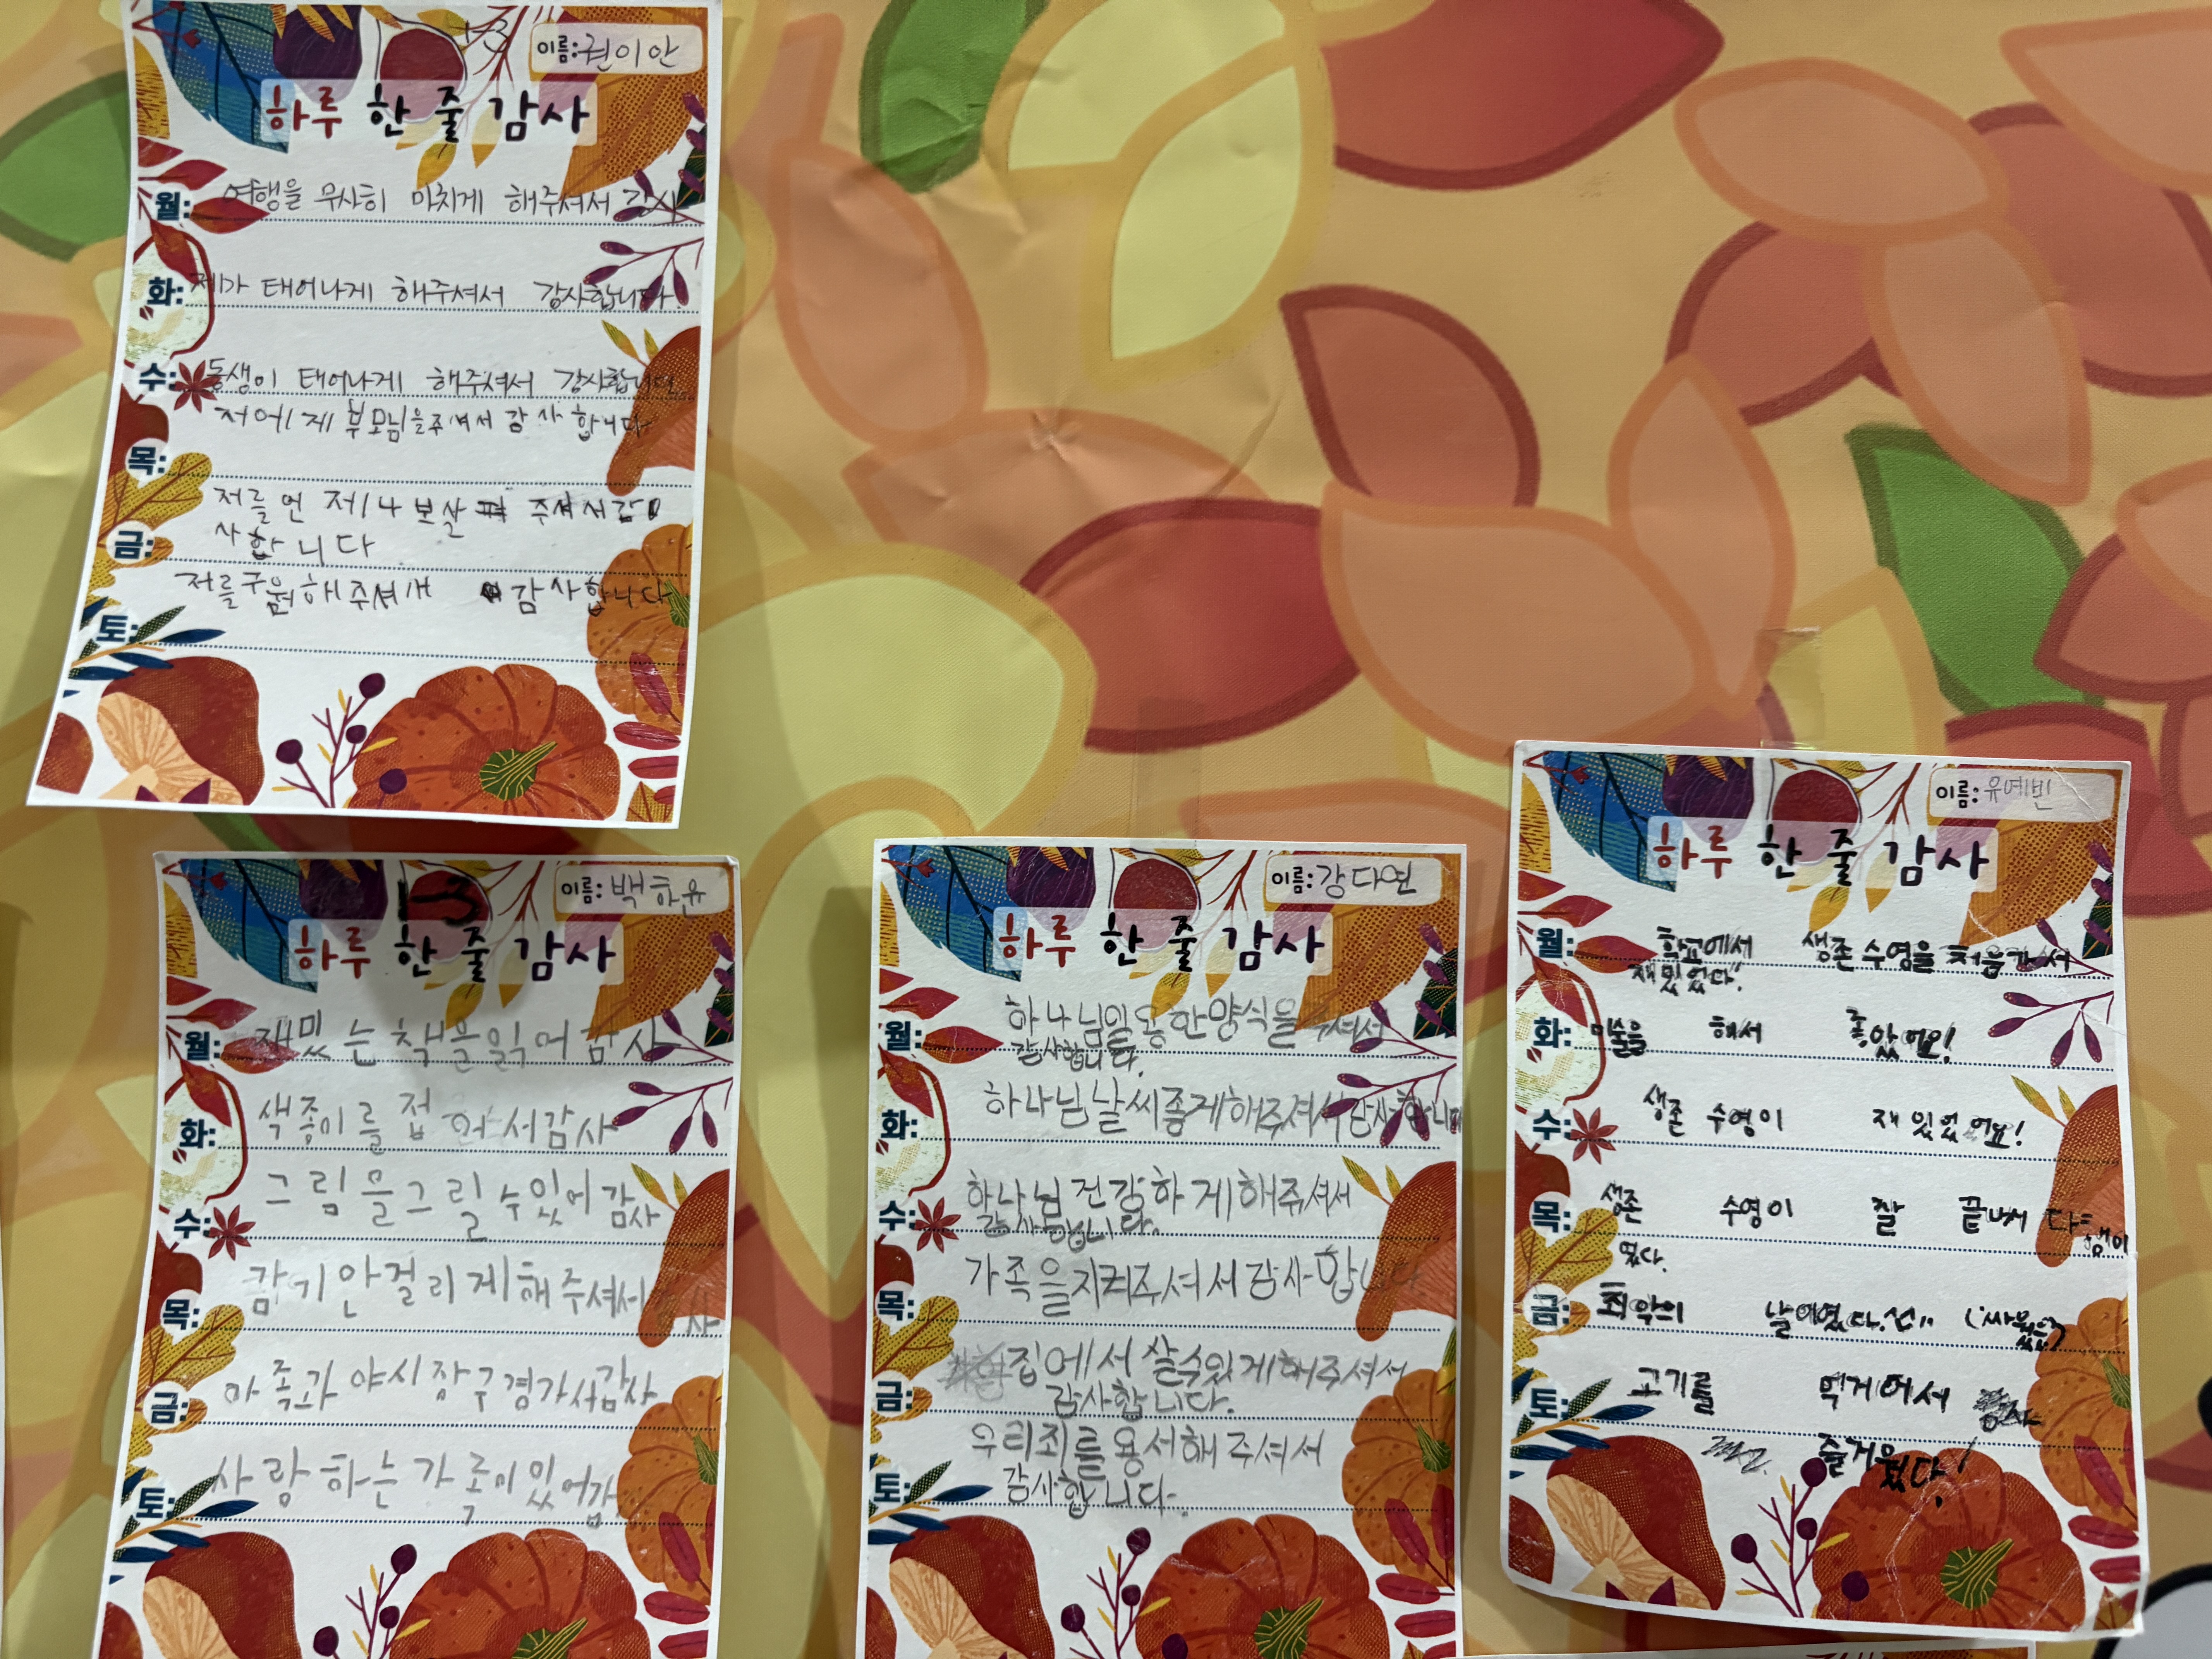 1-3
이름: 권이안
하루 한 줄 감사
월: 여행을 무사히 마치게 해주셔서 감사
화: 제가 태어나게 해주셔서 감사합니다
수: 동생이 태어나게 해주셔서 감사합니다
저에게 부모님을주셔서 감사합니다
목:
저를언제나보살펴 주셔서감
사합니다
금:
저를구원해주셔서 감사합니다
토:
1-3
이름: 백하윤
하루 한 줄 감사
월: 재밌는책을읽어감사
화: 색종이를접어서감사
수: 그림을그릴수있어감사
목: 감기안걸리게해주셔서감사
금: 가족과야시장구경가서감사
토: 사랑하는가족이있어감
이름: 강다연
하루 한 줄 감사
월: 하나님일용한양식을주셔서
감사합니다.
화: 하나님날씨좋게해주셔서감사합니다
수: 하나님건강하게해주셔서
감사합니다.
목: 가족을지켜주셔서감사합니다
금: 집에서살수있게해주셔서
감사합니다.
토: 우리죄를용서해주셔서
감사합니다.
이름: 유예빈
하루 한 줄 감사
월: 학교에서 생존수영을처음가서
재밌었다!
화: 미술을 해서 좋았어요!
수: 생존 수영이 재있었어요!
목: 생존 수영이 잘 끝나서 다행이
였다.
금: 최악의 날이였다.
토: 고기를 먹게어서
즐거웠다!